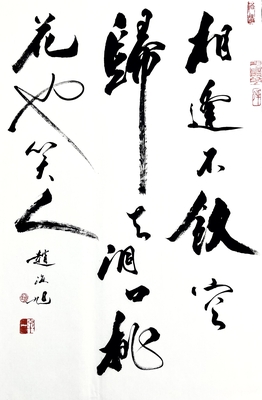 相逢不飲空
歸去洞口桃
花也笑人
趙海旭